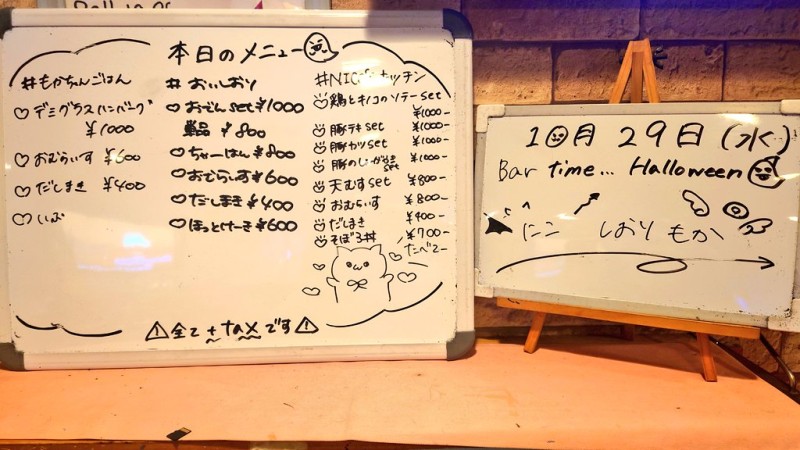 本日のメニュー
#もかちゃんごはん
♡デミグラスハンバーグ
¥1000
♡おむらいす ¥600
♡だしまき ¥400
# おいしおり
♡おでんset¥1000
単品 ¥800
♡ちゃーはん¥800
♡おむらいす¥600
♡だしまき¥400
♡ほっとけーき¥600
鶏とキノコのソテーset
¥1000-
豚テキset ¥1000-
豚カツset ¥1000-
豚のしょうがやきset ¥1000-
天むすset ¥800-
おむらいす ¥800-
だしまき ¥400-
そぼろ丼 ¥700-
たべてー
⚠全て+taxです⚠
10月 29日(水)
Bar time... Halloween
にこ しおり もか